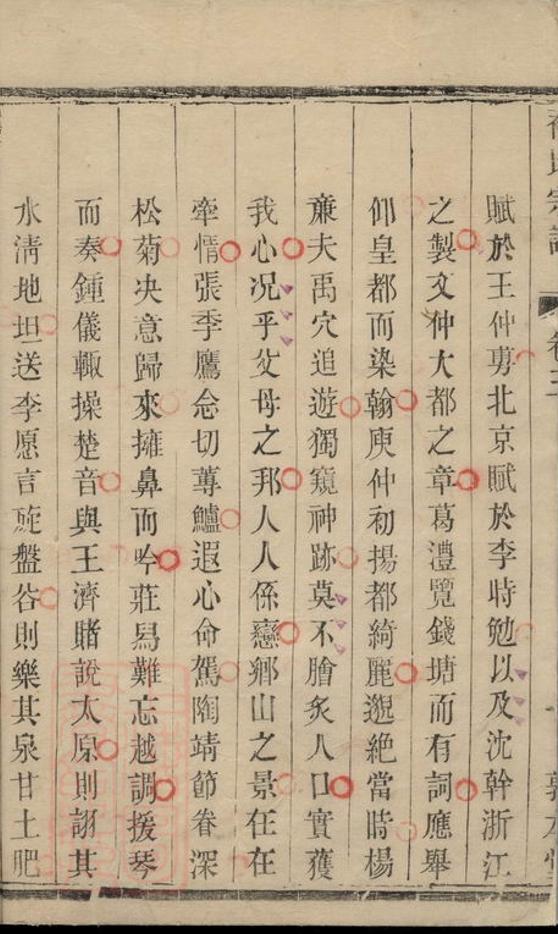 賦於王仲旉北京賦於李時勉以及沈幹浙江
之製文仲大都之章葛澧覽錢塘而有詞應舉
仰皇都而染翰庾仲初揚都綺麗邈絶當時楊
亷夫禹穴追遊獨窺神跡莫不膾炙人口實獲
我心况乎父母之邦人人係戀鄉山之景在在
牽情張季鷹念切蓴鱸遐心命駕陶靖節眷深
松菊决意歸來擁鼻而吟莊舄難忘越調援琴
而奏鍾儀輙操楚音與王濟賭說太原則詡其
水淸地坦送李愿言旋盤谷則樂其泉甘土肥